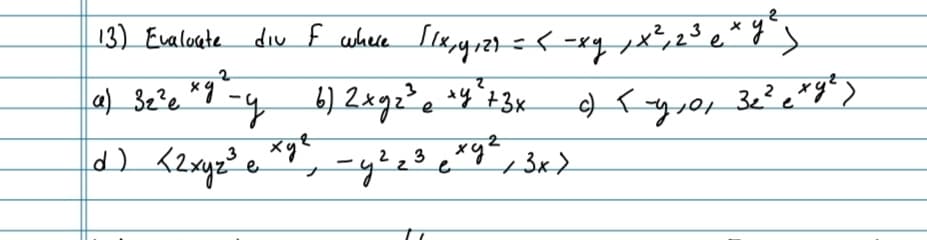 13) Evaluate div F where F(x,y,z) = < -xy , x², z³ e^xy² >
a) 3z²e^xy² -y b) 2xyz³ e^xy² +3x c) < -y,0, 3z² e^xy² >
d) <2xyz³ e^xy², -y² z³ e^xy², 3x>